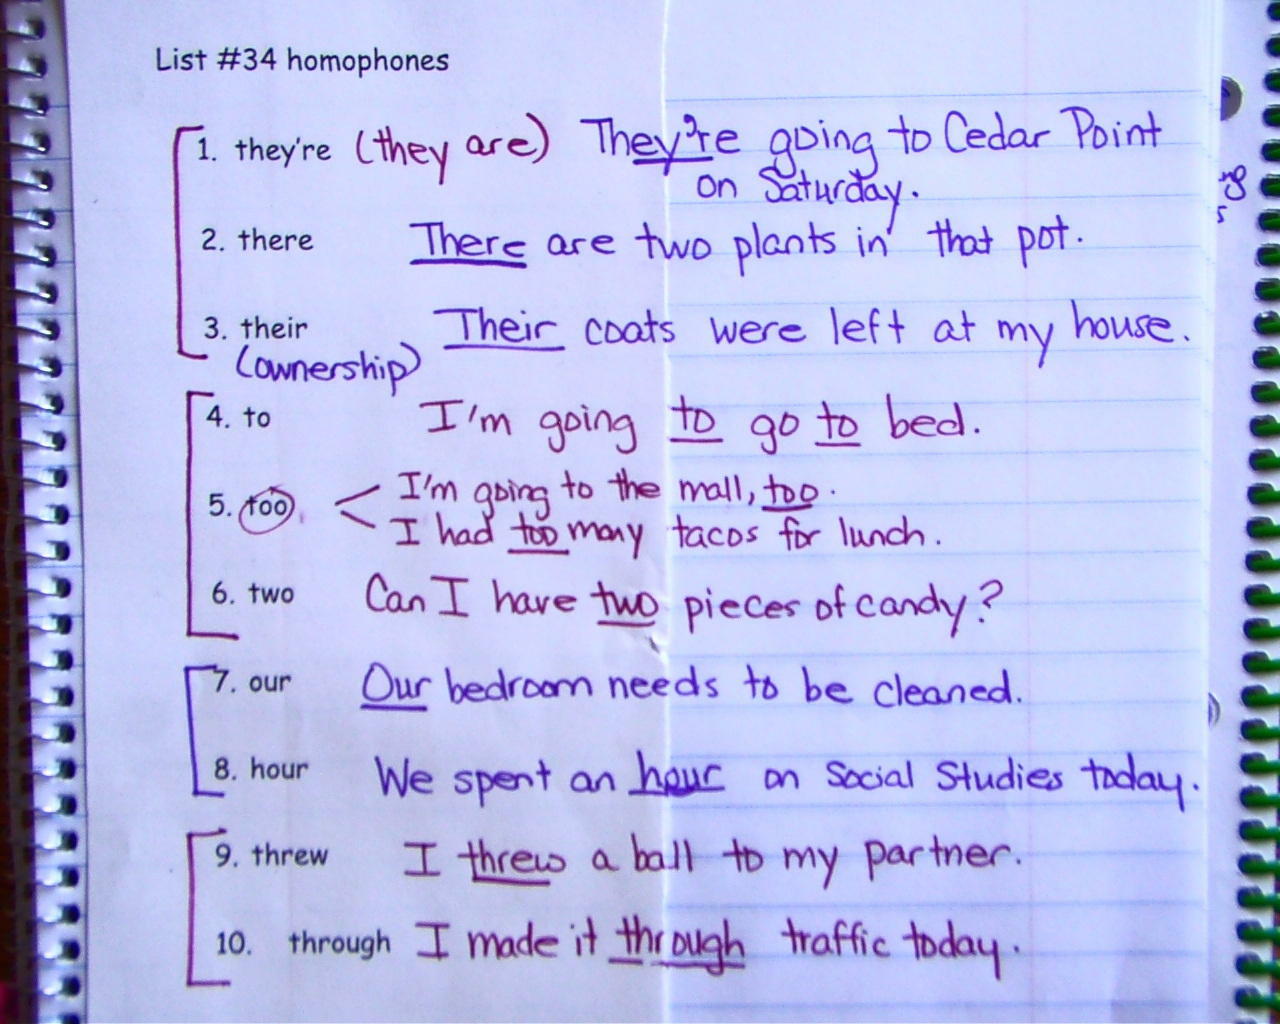 List #34 homophones
1. they're (they are) They're going to Cedar Point
on Saturday.
2. there There are two plants in that pot.
3. their Their coats were left at my house.
(ownership)
4. to I'm going to go to bed.
5. too I'm going to the mall, too.
I had too many tacos for lunch.
6. two Can I have two pieces of candy?
7. our Our bedroom needs to be cleaned.
8. hour We spent an hour on Social Studies today.
9. threw I threw a ball to my partner.
10. through I made it through traffic today.